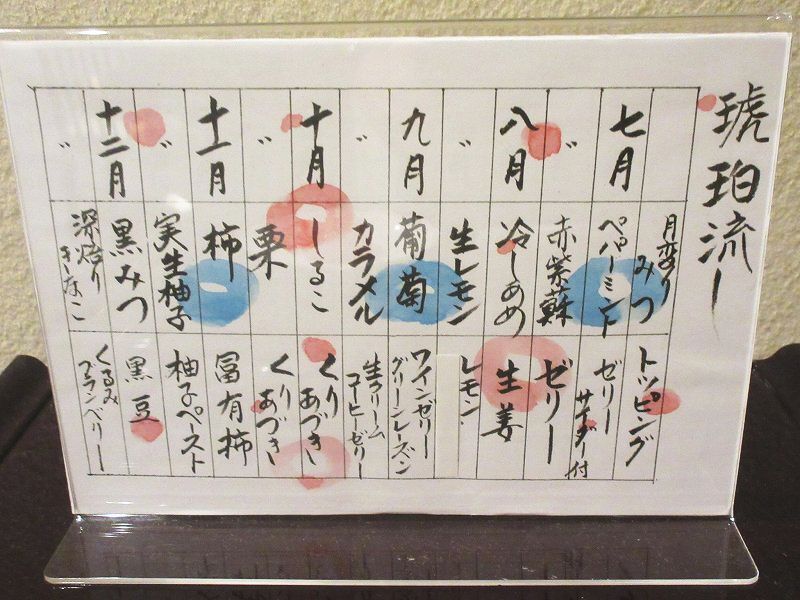 琥珀流し
月変り みつ
トッピング
七月
ペパーミント
ゼリー サイダー付
〃
赤紫蘇
ゼリー
八月
冷しあめ
生姜
〃
生レモン
レモン
九月
葡萄
ワインゼリー
グリーンレーズン
〃
カラメル
生クリーム
コーヒーゼリー
十月
しるこ
くり
あづき
〃
栗
くり
あづき
十一月
柿
冨有柿
〃
実生柚子
柚子ペースト
十二月
黒みつ
黒豆
〃
深焙り
きなこ
くるみ
フランベリー